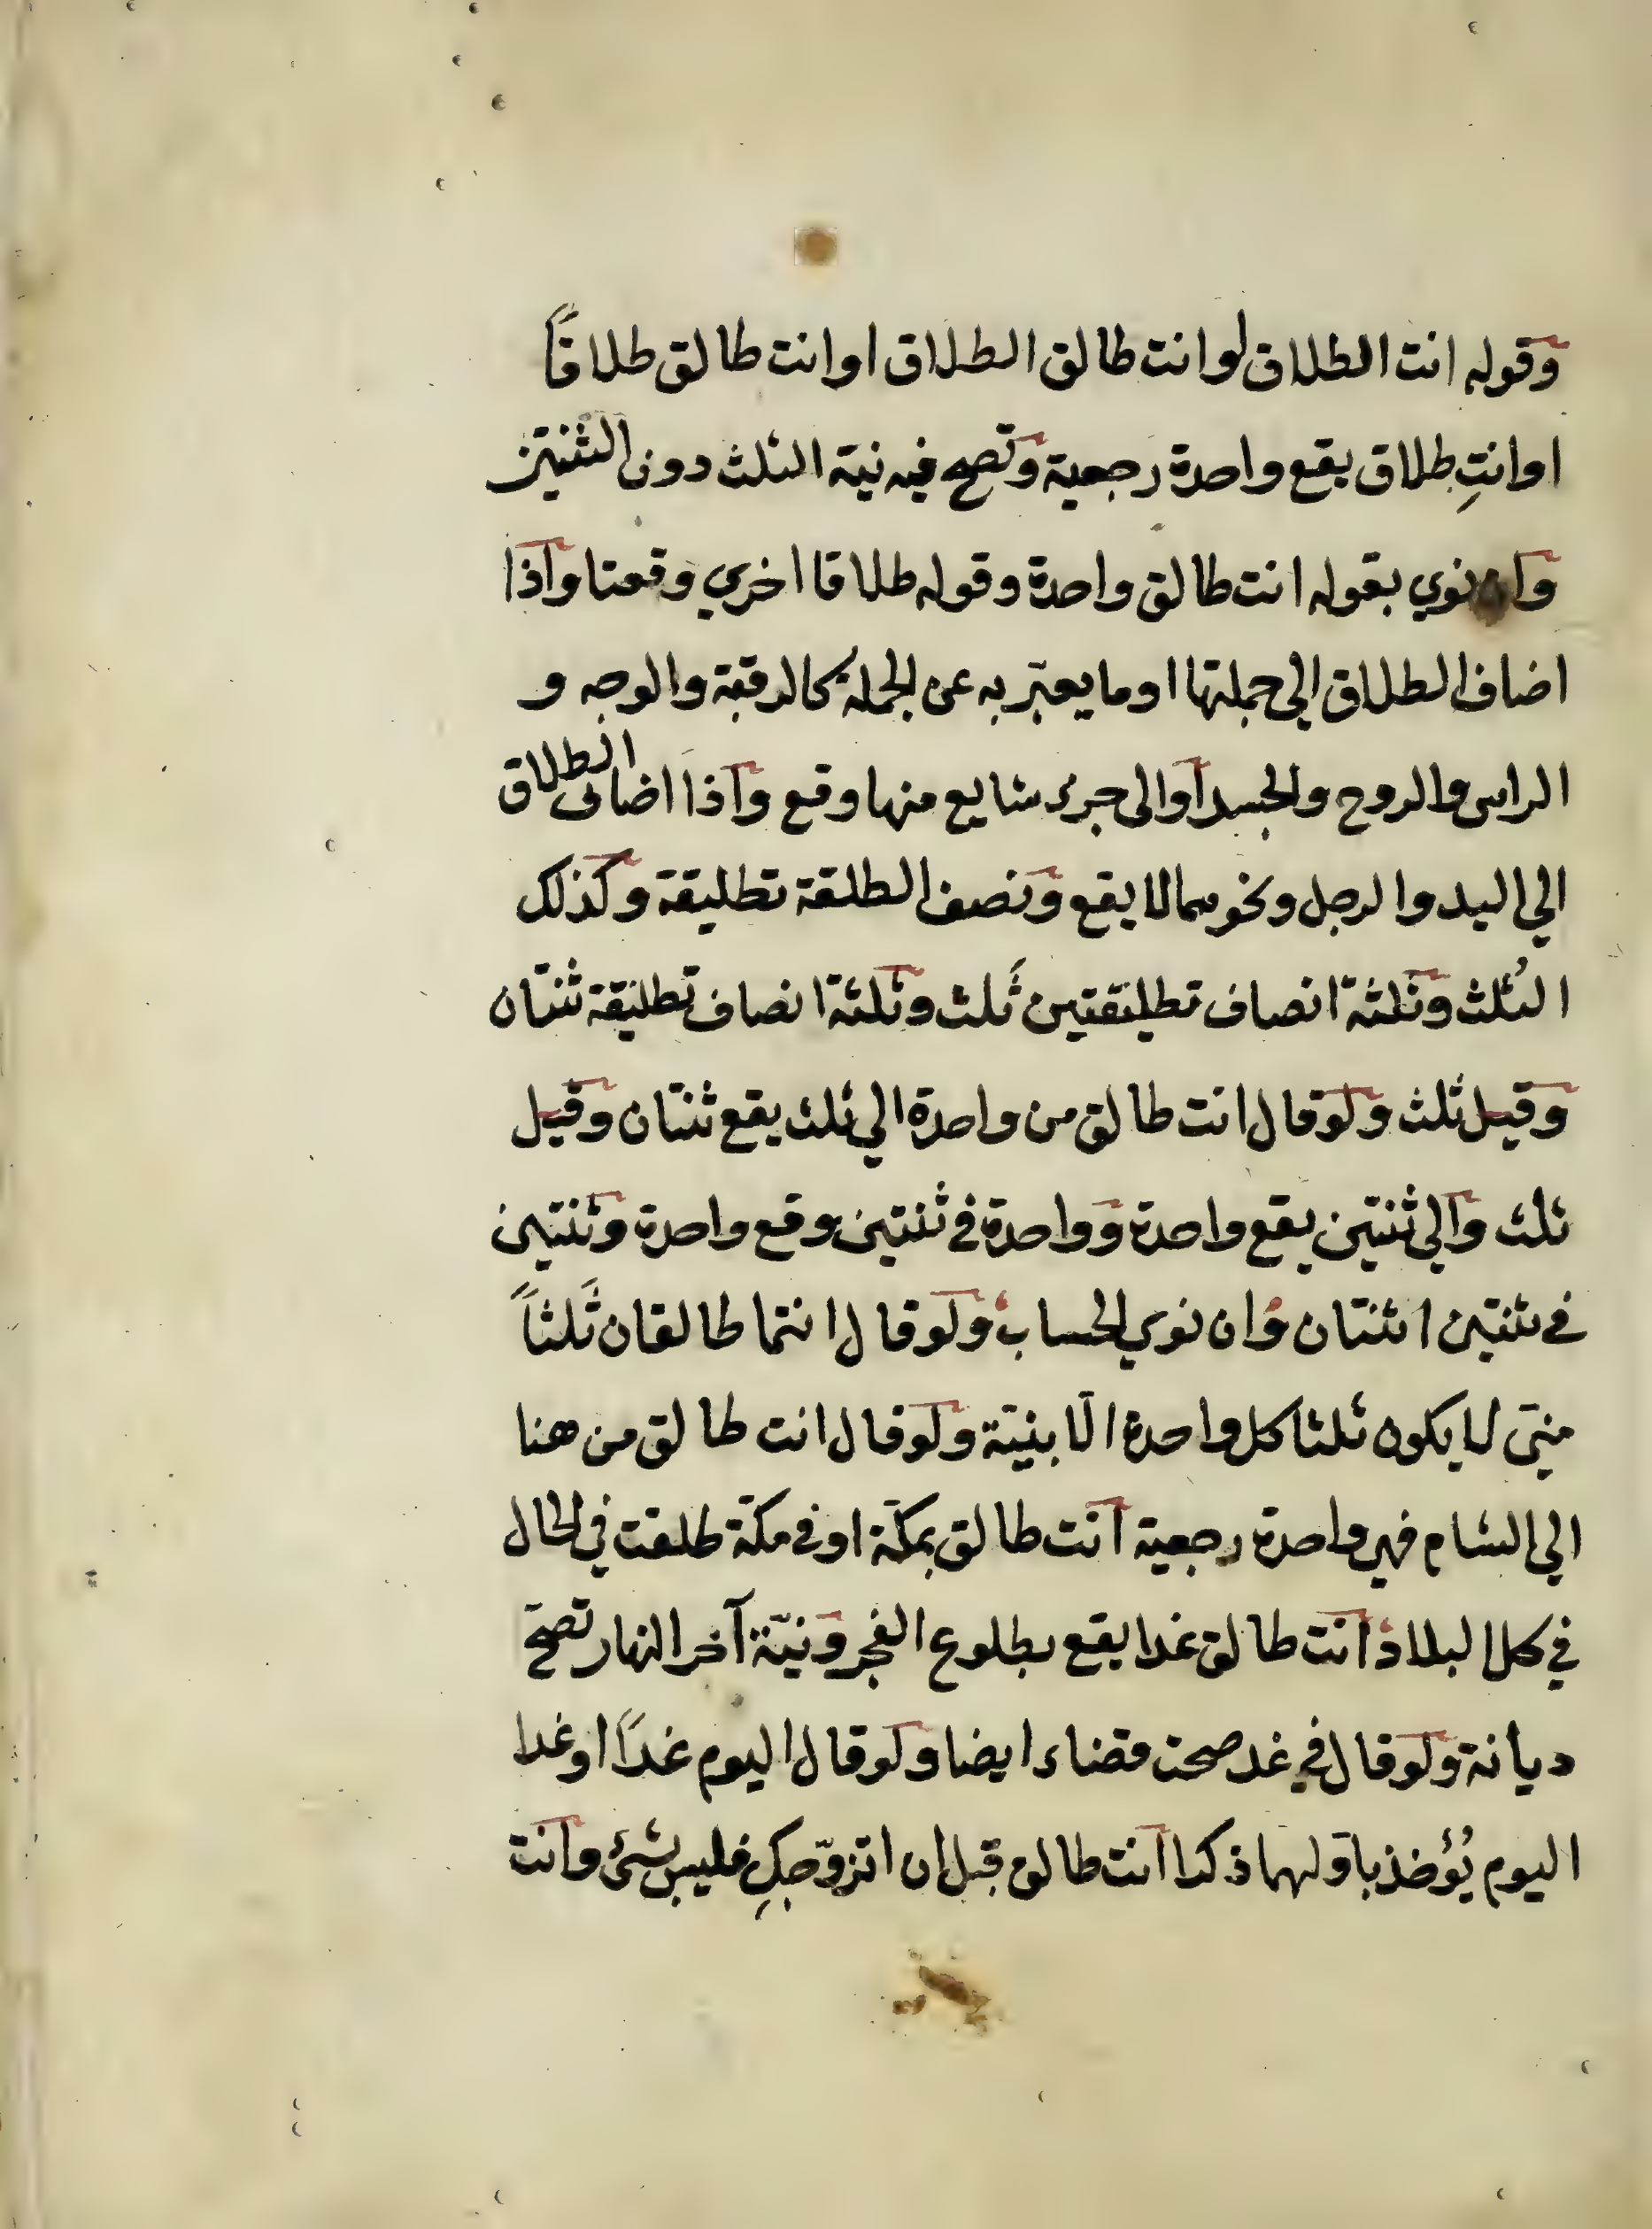 وقوله انت الطلاق او انت طالق الطلاق او انت طالق طلاقاً
او انتِ طلاق يقع واحدة رجعية وتصح فيه نية الثلث دون الثنتين
وان نوي بقوله انت طالق واحدة وقوله طلاقا اخري وقعتا واذا
اضاف الطلاق الي جملتها او ما يعبّر به عن الجملة كالرقبة والوجه و
الراس والروح والجسد او الى جزء شايع منها وقع واذا اضاف الطلاق
الي اليد والرجل ونحوهما لا يقع ونصف الطلقة تطليقة وكذلك
الثُلث وثلثة انصاف تطليقتين ثَلث وثلثة انصاف تطليقة ثنتان
وقيل ثلث ولو قال انت طالق من واحدة الي ثلث يقع ثنتان وقيل
ثلث والي ثنتين يقع واحدة وواحدة في ثنتين وقع واحدة وثنتين
في ثنتين اثنتان وان نوي الحساب ولو قال انتما طالقان ثَلثاً
منّي لا يكون ثلثا كل واحدة الّا بنيّة ولو قال انت طالق من هنا
الي الشام فهي واحدة رجعية انت طالق بمكّة او في مكّة طلقت في الحال
في كل البلاد انت طالق غدا يقع بطلوع الفجر ونيّة آخر النهار تصحّ
ديانة ولو قال في غد صحت قضاء ايضا ولو قال اليوم غداً او غدا
اليوم يُؤخذ باوّلهما ذكرا انت طالق قبل ان اتزوّجكِ فليس بشئ وانت